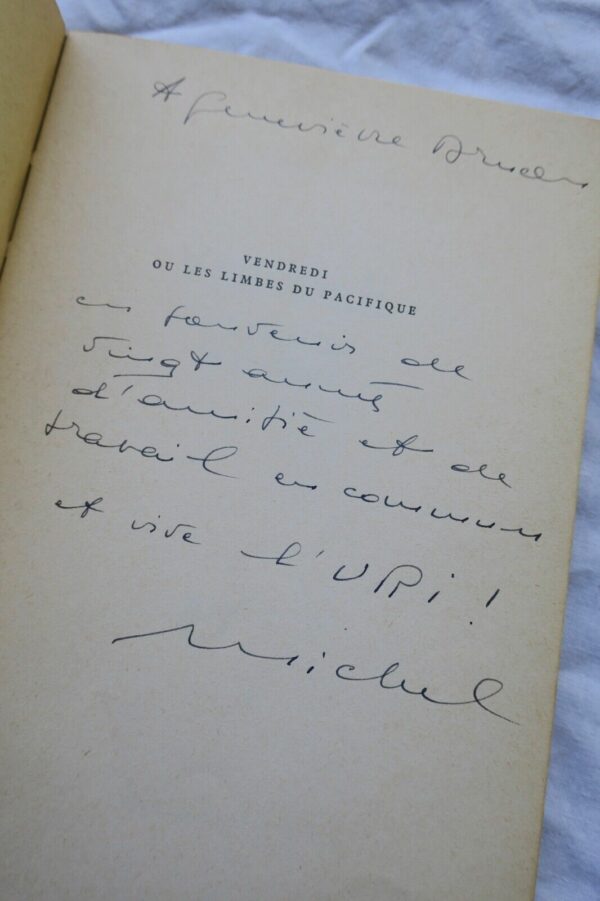 A Geneviève
VENDREDI
OU LES LIMBES DU PACIFIQUE
en souvenir de
vingt années
d'amitié et de
travail en commun
et vive l'URI !
Michel